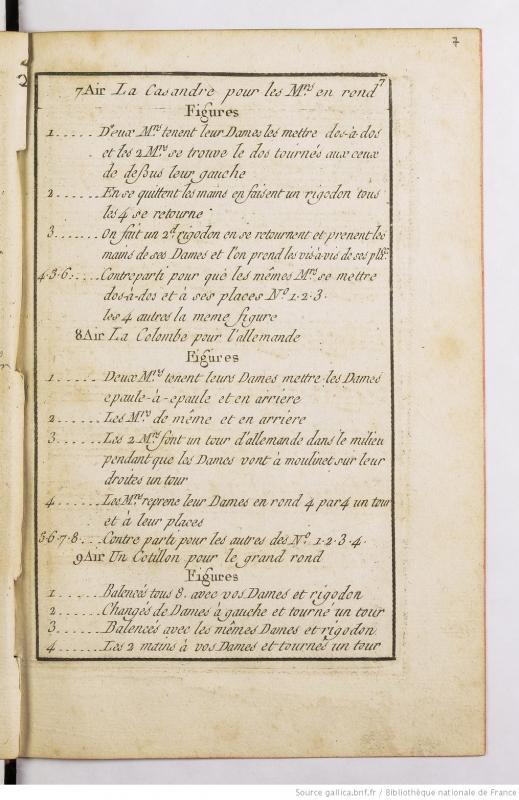 7
7
7 Air La Casandre pour les M.rs en rond
Figures
1...... Deux M.rs tenent leur Dames les mettre dos-à-dos
et les 2 M.rs se trouve le dos tournés aux ceux
de deßus leur gauche
2....... En se quittent les mains en faisent un rigodon tous
les 4 se retourne
3....... On fait un 2.d rigodon en se retournent et prenent les
mains de ses Dames et l'on prend les vis-à-vis de ses
4·5·6..... Contreparti pour què les mêmes M.rs se mettre
dos-à-dos et à ses places N.o 1·2·3.
les 4 autres la meme figure
8 Air La Colombe pour l'allemande
Figures
1....... Deux M.rs tenent leurs Dames mettre les Dames
epaule-à-epaule et en arriére
2....... Les M.rs de même et en arriére
3....... Les 2 M.rs font un tour d'allemande dans le milieu
pendant que les Dames vont à moulinet sur leur
droites un tour
4....... Les M.rs reprene leur Dames en rond 4 par 4 un tour
et à leur places
5·6·7·8... Contre parti pour les autres des N.o 1·2·3·4.
9 Air Un Cotillon pour le grand rond
Figures
1....... Balencés tous 8. avec vos Dames et rigodon
2....... Changés de Dames à gauche et tourne un tour
3....... Balencés avec les mêmes Dames et rigodon
4....... Les 2 mains à vos Dames et tournés un tour
Source gallica.bnf.fr / Bibliothèque nationale de France